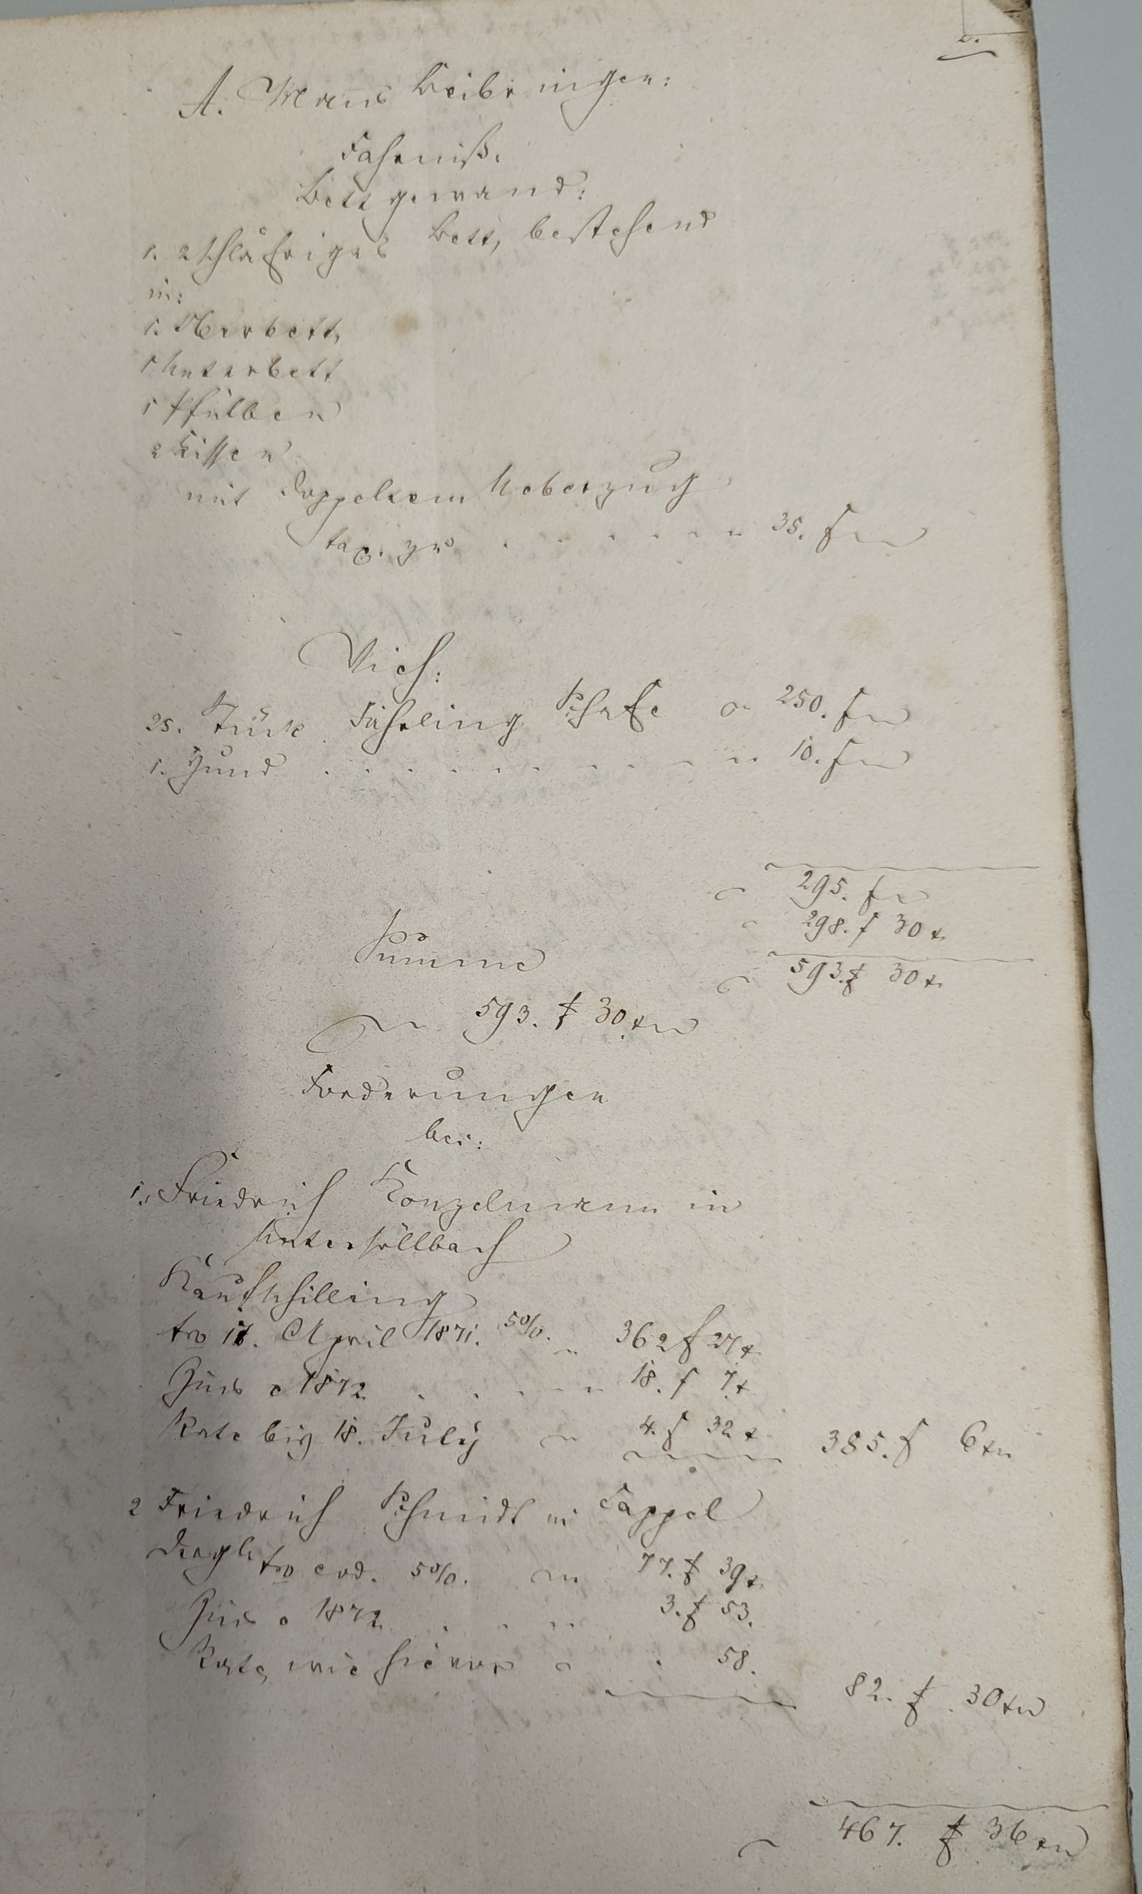 2.
A. Manns Beibringen:
Fahrniß.
Bettgewand:
1. 2 schläfriges Bett, bestehend
in:
1. Oberbett,
1 Unterbett
1 Pfülben
2 Kissen
mit doppeltem Ueberzug
tax. zu . . . . . . " 35. f
Vieh:
25. Stück Jährling Schafe " 250. f
1. Hund . . . . . . . . " 10. f
" 295. f
" 298. f 30 x
Summe " 593. f 30 x
593. f 30 x
Forderungen
bei:
1., Friedrich Konzelmann in
Untersöllbach
Kaufschilling
to 11. April 1871. 5%. " 362 f 27 x
Zins a 1872 . . . . " 18. f 7 x
Rate biß 18. July " 4. f 32 x 385. f 6 x
2 Friedrich Schmidt in Cappel
Dergl. to eod. 5%. " 77. f 39 x
Zins a 1872 . . " 3. f 53.
Rate, wie hievor " . 58. 82. f 30 x
" 467. f 36 x